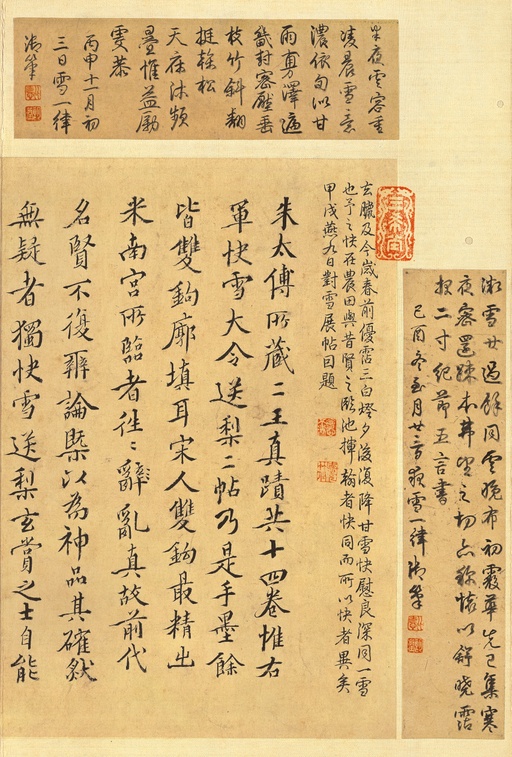 半夜雲容重
凌晨雪意
濃依旬似甘
雨澤遍
畿封密壓垂
枝竹斜翻
挺榦松
天庥沐頻
疊惟益勵
恭
丙申十一月初
三日雪一律
御筆
雪廿過餘同雲晚布初霰華先已集寒
夜密還疎本望之切稱懷以舒曉霑
報二寸紀節五言書
己酉冬至月廿夜雪一律 御筆
臘及今歲春前優霑三白燈夕後復降甘雪快慰良深同一雪
也予之快在農田與昔賢之臨池揮翰者快同而所以快者異矣
甲戌燕九日對雪展帖因題
朱太傅所藏二王真蹟共十四卷惟右
軍快雪大令送梨二帖乃是手墨餘
皆雙鉤廓填耳宋人雙鉤最精出
米南宮所臨者往〻辭亂真故前代
名賢不復辨論槩以為神品其確然
無疑者獨快雪送梨玄賞之士自能